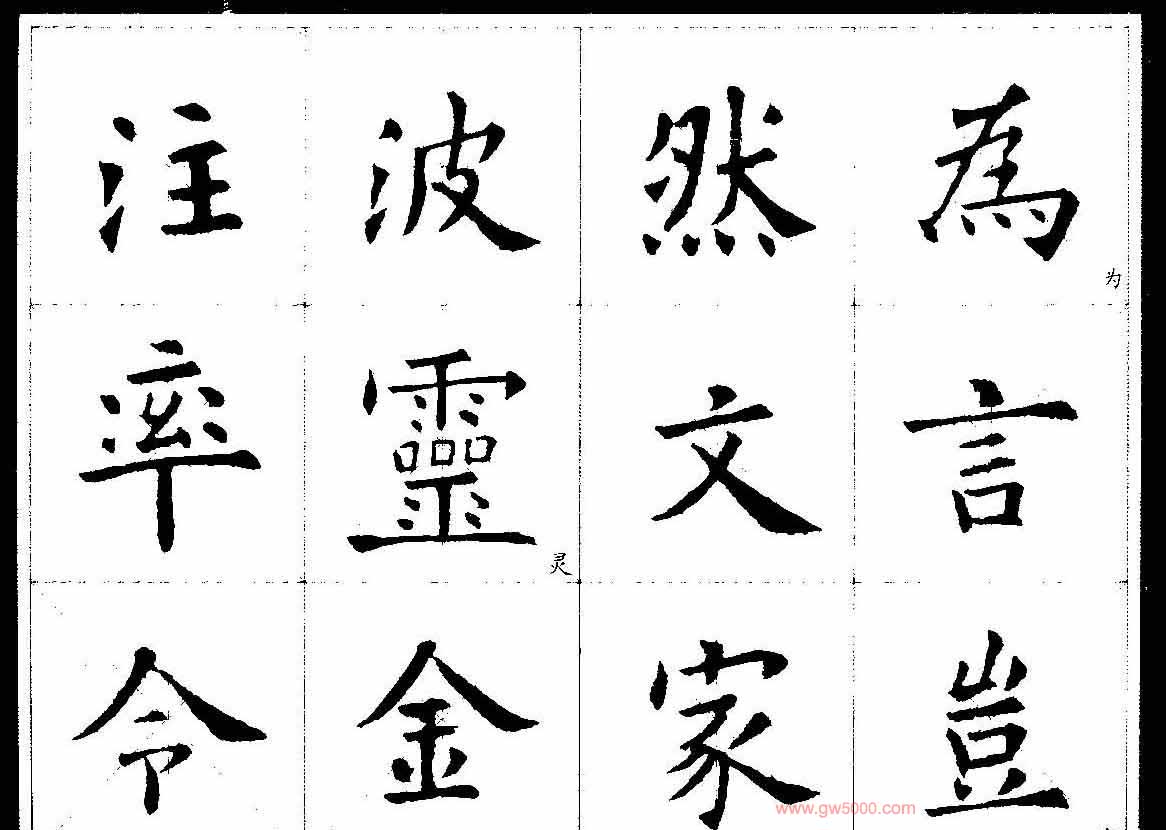 注波然為
为
率靈文言
灵
令金家豈
www.gw5000.com